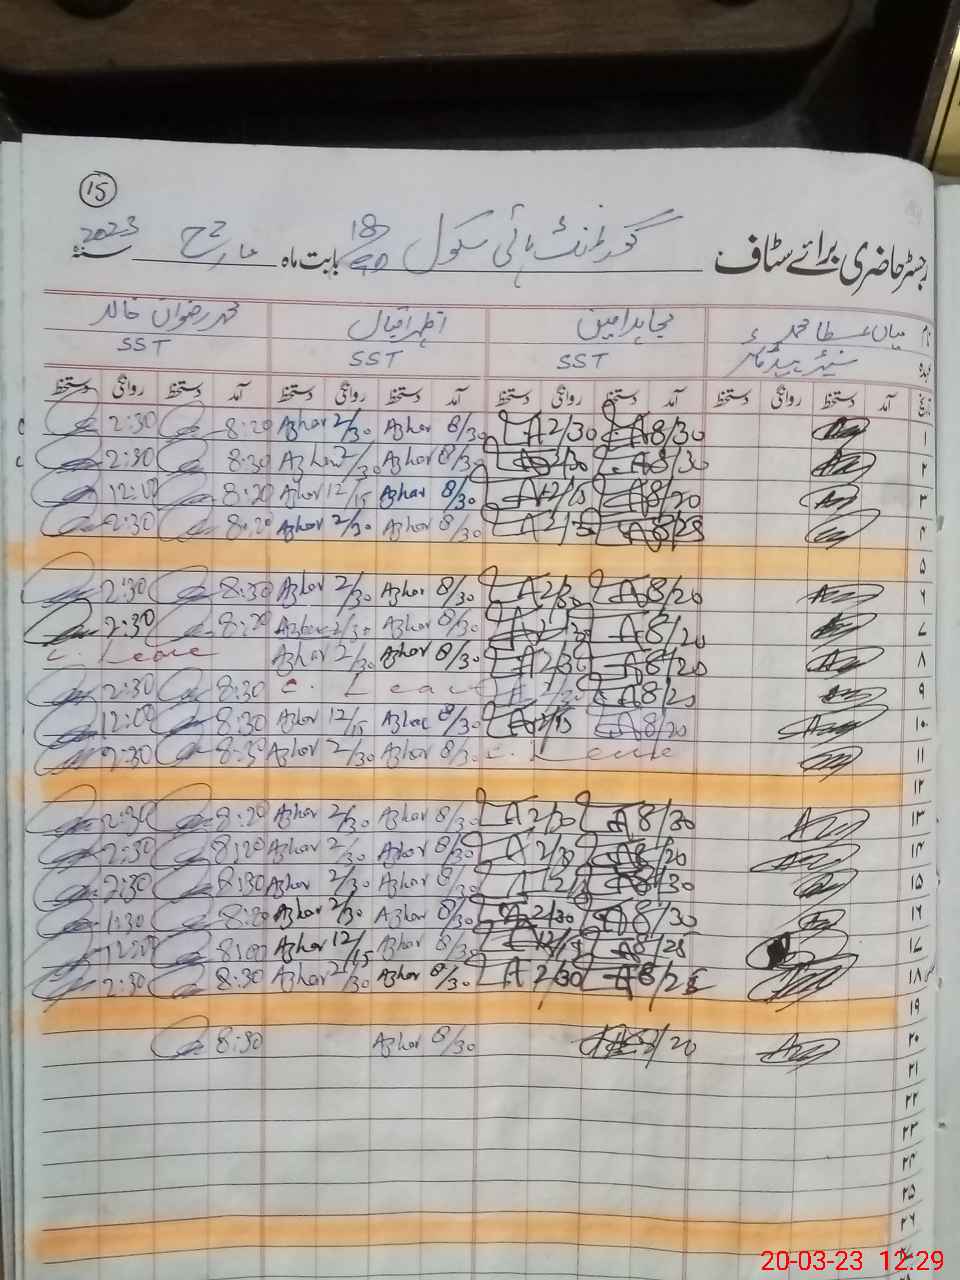 15
رجسٹر حاضری برائے سٹاف گورنمنٹ ہائی سکول 18 بابت ماہ مارچ سنہ 2023
نام میاں عطا محمد مجاہد امین اظہر اقبال محمد رضوان خالد
عہدہ سینئر ہیڈماسٹر SST SST SST
تاریخ آمد دستخط روانگی دستخط آمد دستخط روانگی دستخط آمد دستخط روانگی دستخط آمد دستخط روانگی دستخط
۱ 8/30 2/30 8/30 Azhar 2/30 Azhar 8:20 2:30
۲ 8/30 2/30 8/30 Azhar 2/30 Azhar 8:30 2:30
۳ 8/20 12/15 8/30 Azhar 12/15 Azhar 8:20 12:00
۴ 8/25 2/30 8/30 Azhar 2/30 Azhar 8:20 2:30
۵
۶ 8/20 2/30 8/30 Azhar 2/30 Azhar 8:30 2:30
۷ 8/20 2/30 8/30 Azhar 2/30 Azhar 8:20 2:30
۸ 8/20 2/30 8/30 Azhar 2/30 Azhar C. Leave
۹ 8/20 2/30 C. Leave 8:30 2:30
۱۰ 8/20 12/15 8/30 Azhar 12/15 Azhar 8:30 12:00
۱۱ C. Leave 8/30 Azhar 2/30 Azhar 8:30 2:30
۱۲
۱۳ 8/30 2/30 8/30 Azhar 2/30 Azhar 8:20 2:30
۱۴ 8/20 2/30 8/30 Azhar 2/30 Azhar 8:20 2:30
۱۵ 8/30 2/30 8/30 Azhar 2/30 Azhar 8:30 2:30
۱۶ 8/30 2/30 8/30 Azhar 2/30 Azhar 8:20 1:30
۱۷ 8/25 12/15 8/30 Azhar 12/15 Azhar 8:00 12:00
۱۸ 8/25 2/30 8/30 Azhar 2/30 Azhar 8:30 2:30
۱۹
۲۰ 8/20 8/30 Azhar 8:30
۲۱
۲۲
۲۳
۲۴
۲۵
۲۶
20-03-23 12.29